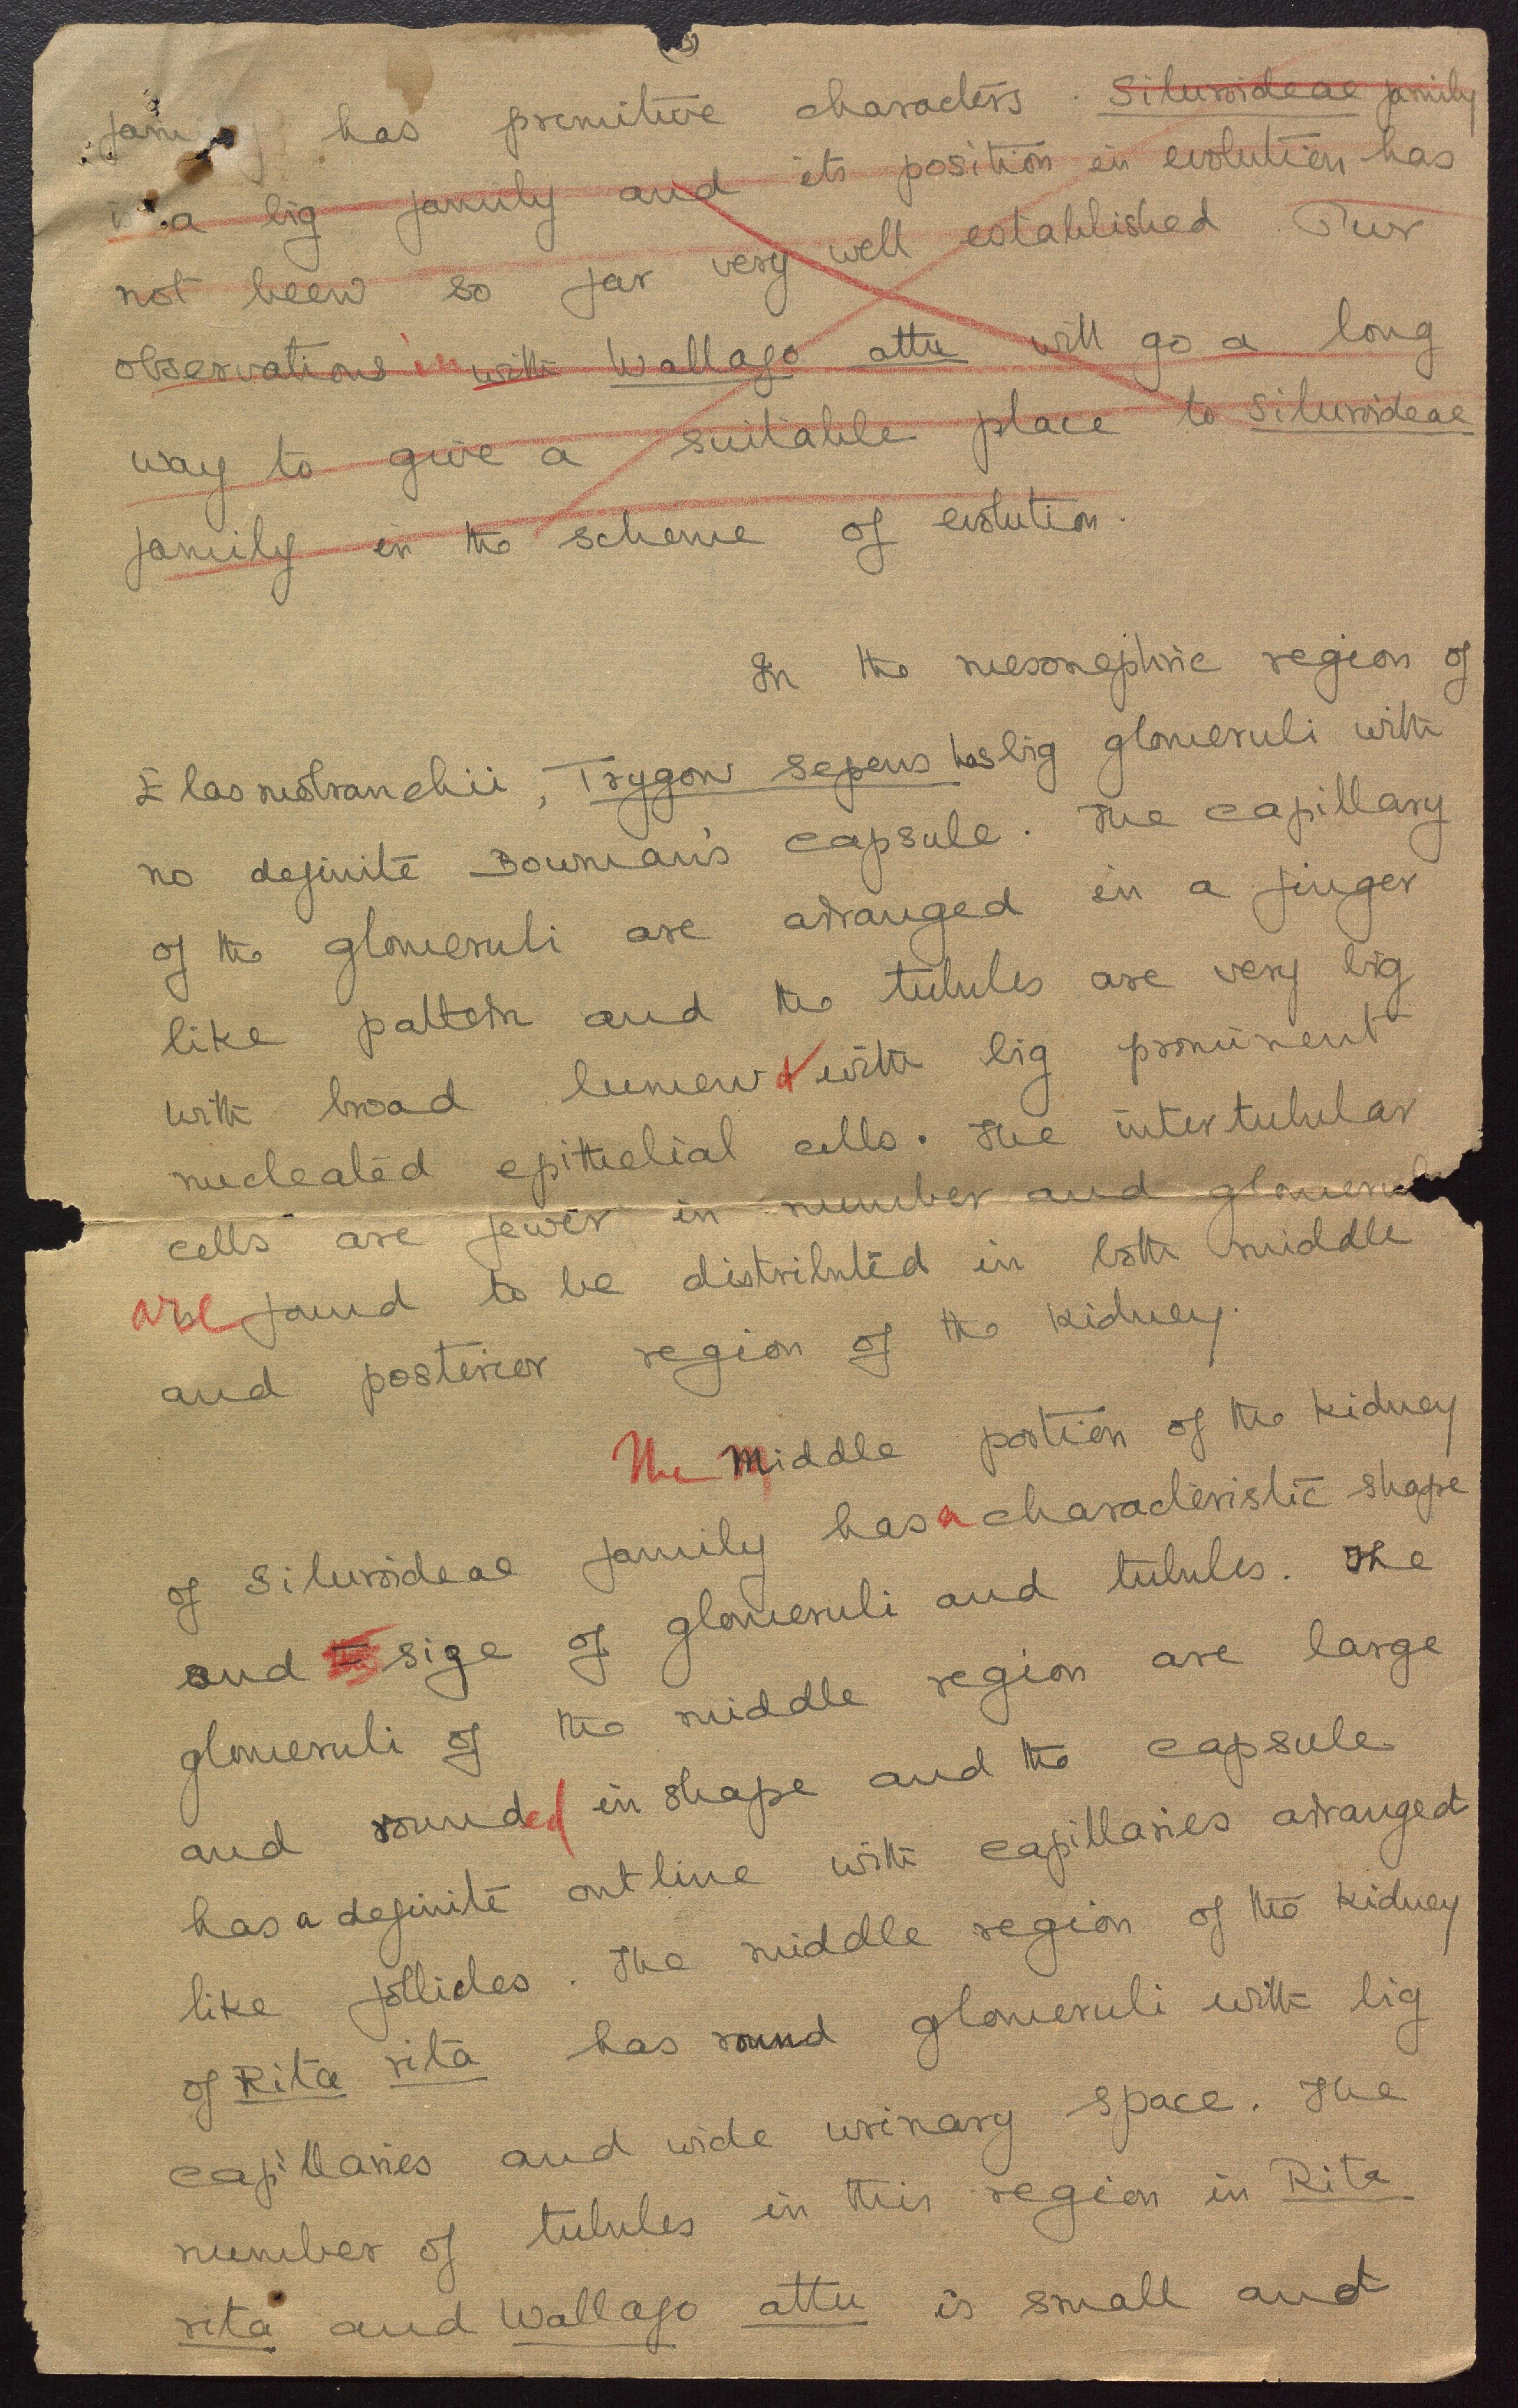 family has premitive characters. Siluroideae family
is a big family and its position in evolution has
not been so far very well established. Our
observations in with Wallago attu will go a long
way to give a suitable place to Siluroideae
family in the scheme of evolution.
In the mesonephric region of
Elasmobranchii, Trygon sepens has big glomeruli with
no definite Bowman's capsule. The capillary
of the glomeruli are arranged in a finger
like pattern and the tubules are very big
with broad lumen & with big prominent
nucleated epithelial cells. The intertubular
cells are fewer in number and glomeruli
are found to be distributed in both middle
and posterior region of the kidney.
The middle portion of the kidney
of Siluroideae family has a characteristic shape
and size of glomeruli and tubules. The
glomeruli of the middle region are large
and rounded in shape and the capsule
has a definite outline with capillaries arranged
like follicles. The middle region of the kidney
of Rita rita has round glomeruli with big
capillaries and wide urinary space. The
number of tubules in this region in Rita
rita and Wallago attu is small and